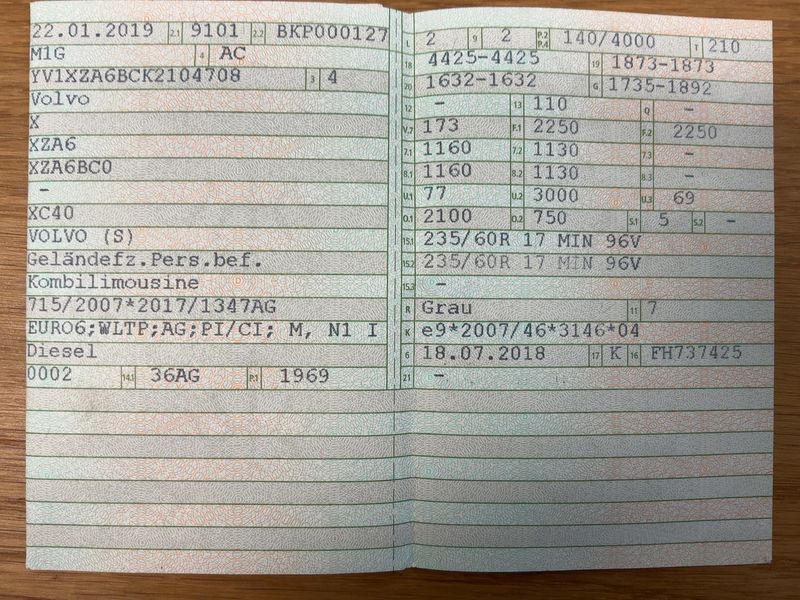 22.01.2019 2.1 9101 2.2 BKP000127
M1G 4 AC
YV1XZA6BCK2104708 3 4
Volvo
X
XZA6
XZA6BC0
-
XC40
VOLVO (S)
Geländefz.Pers.bef.
Kombilimousine
715/2007*2017/1347AG
EURO6;WLTP;AG;PI/CI; M, N1 I
Diesel
0002 14.1 36AG P.1 1969
L 2 9 2 P.2 P.4 140/4000 T 210
18 4425-4425 19 1873-1873
20 1632-1632 G 1735-1892
12 - 13 110 Q -
V.7 173 F.1 2250 F.2 2250
7.1 1160 7.2 1130 7.3 -
8.1 1160 8.2 1130 8.3 -
U.1 77 U.2 3000 U.3 69
O.1 2100 O.2 750 S.1 5 S.2 -
15.1 235/60R 17 MIN 96V
15.2 235/60R 17 MIN 96V
15.3 -
R Grau 11 7
K e9*2007/46*3146*04
6 18.07.2018 17 K 16 FH737425
21 -